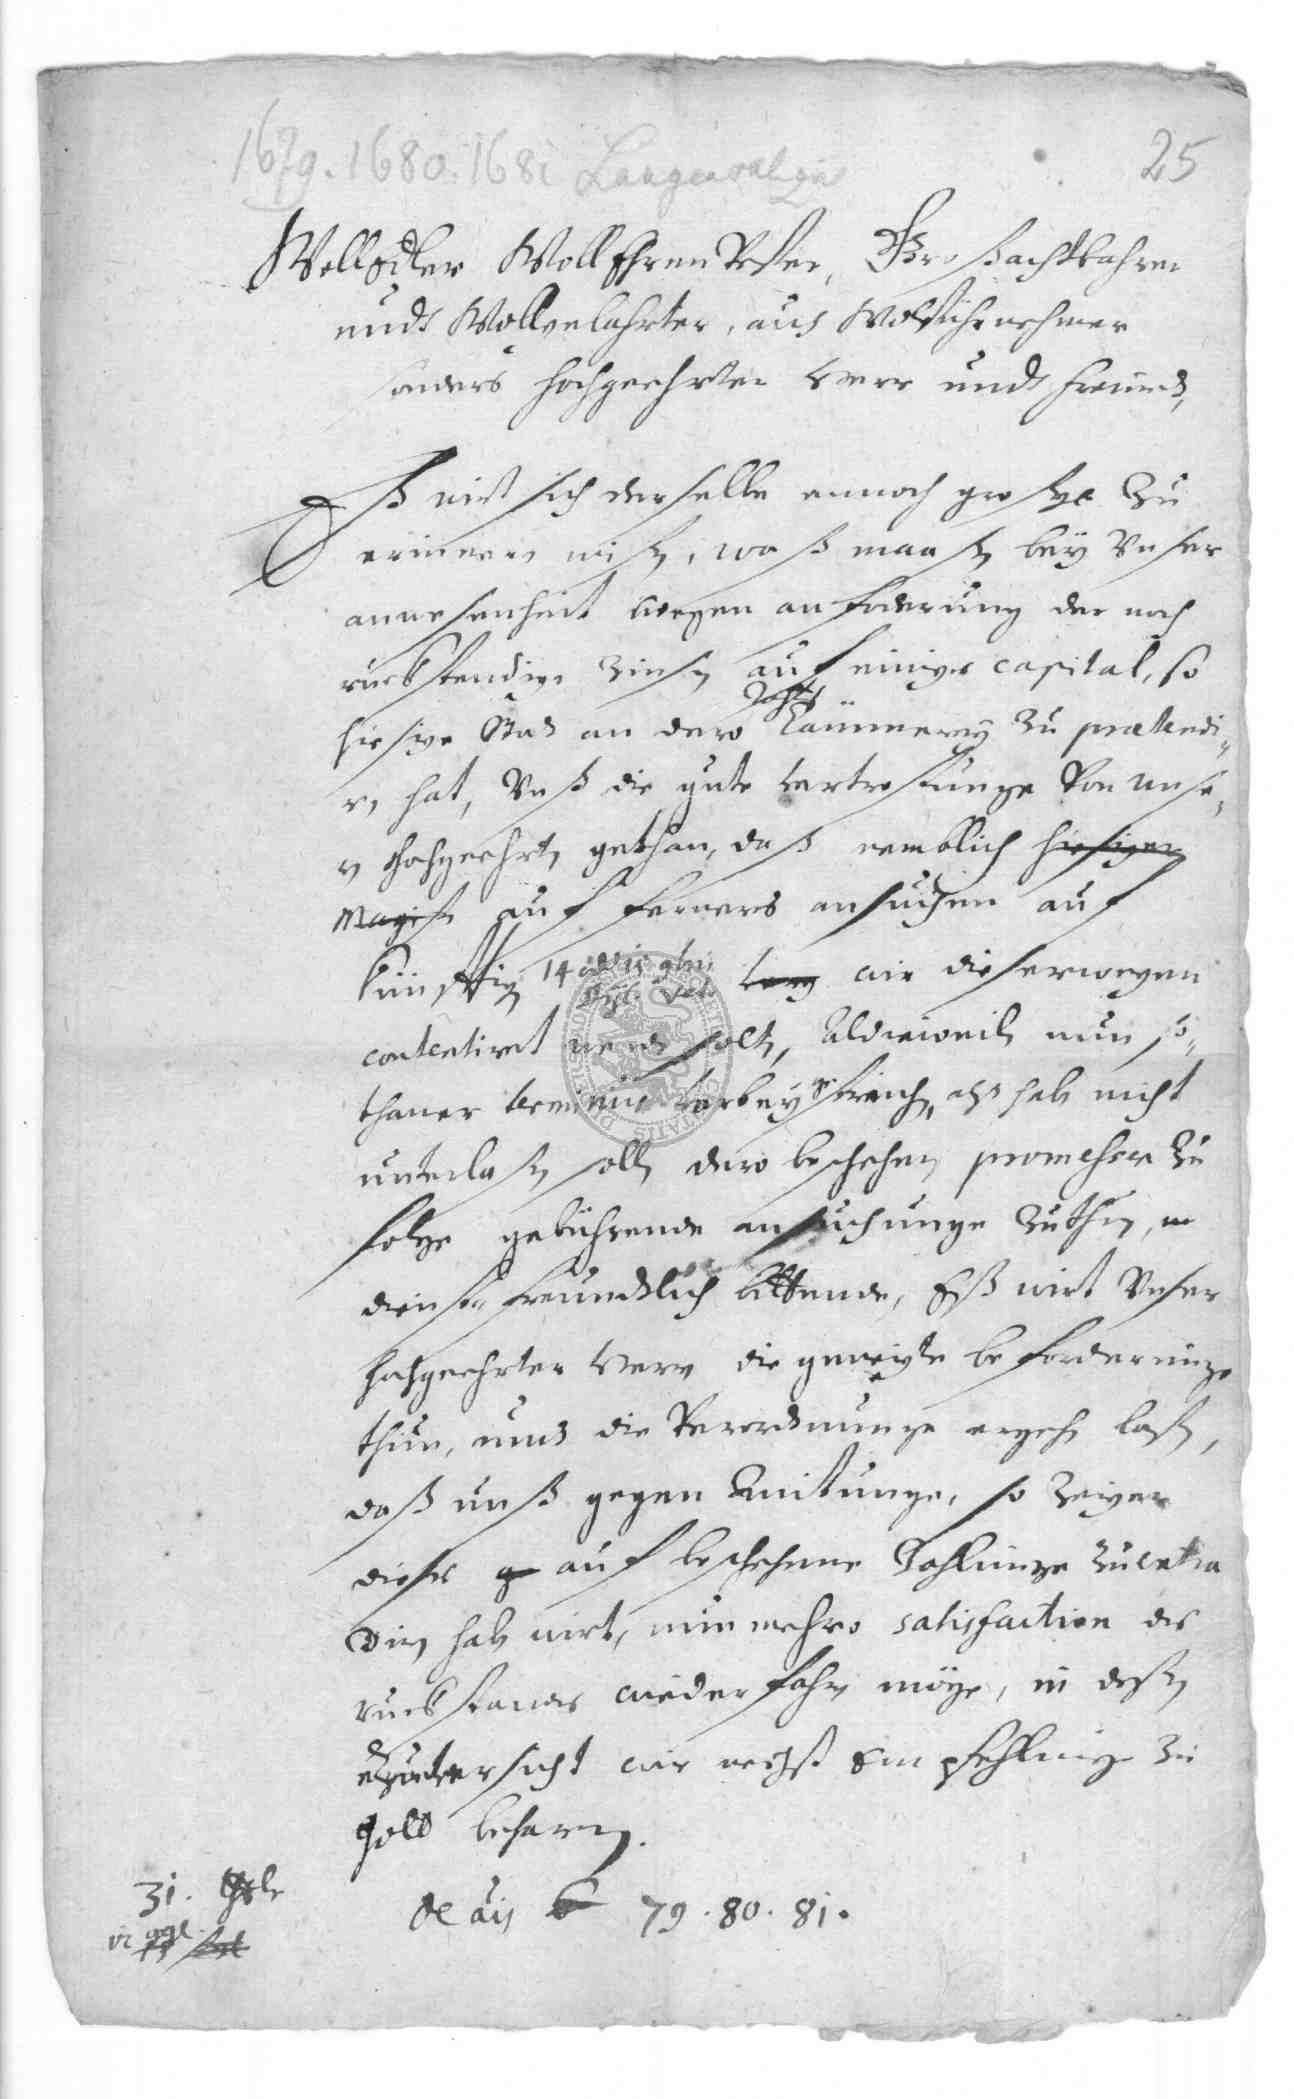 1679. 1680. 1681 Langensalza
25
WollEdler WollEhrenVester, Großachtbahrer
undt Wollgelahrter, auch Wolfürnehmer
sonders hochgeehrter Herr undt Freund,
Eß wirt sich derselbe annoch großg. zu
erinnern wißen, waß maaßen bey Unser
anwesenheit wegen anforderung der noch
rückstendigen Zinsen auf einiges capital, so
hiesige Stad an dero Rahts Cämmerey zu prætendi-
ren hat, Unß die gute vertröstunge von unse-
rn Hochgeehrten gethan, daß nemblich hiesigen
Magist auf ferners ansuchen auf
künfftigen 14 styl. vet. wir dieserwegen
contentiret werden solten, Aldieweil nun so-
thaner terminus vorbey gestrichen, alß haben nicht
unterlaßen sollen dero beschehenen promessen zu
folge gebührende ansuchunge zu thun,
dienstfreundtlich bittende, Eß wirt Unser
hochgeehrter Herr die geneigte beforderunge
thun, und die Verordnunge ergehen laßen,
daß unß gegen Quitunge, so Zeiger
dieses auf beschehene Zahlunge zu extra
diren haben wirt, nunmehro satisfaction des
rückstandes wiederfahren möge, in deßen
Zuversicht wir nechst Empfehlunge zu
Gott beharren.
de aōs 79. 80. 81.
31. thlr
vi ggl.